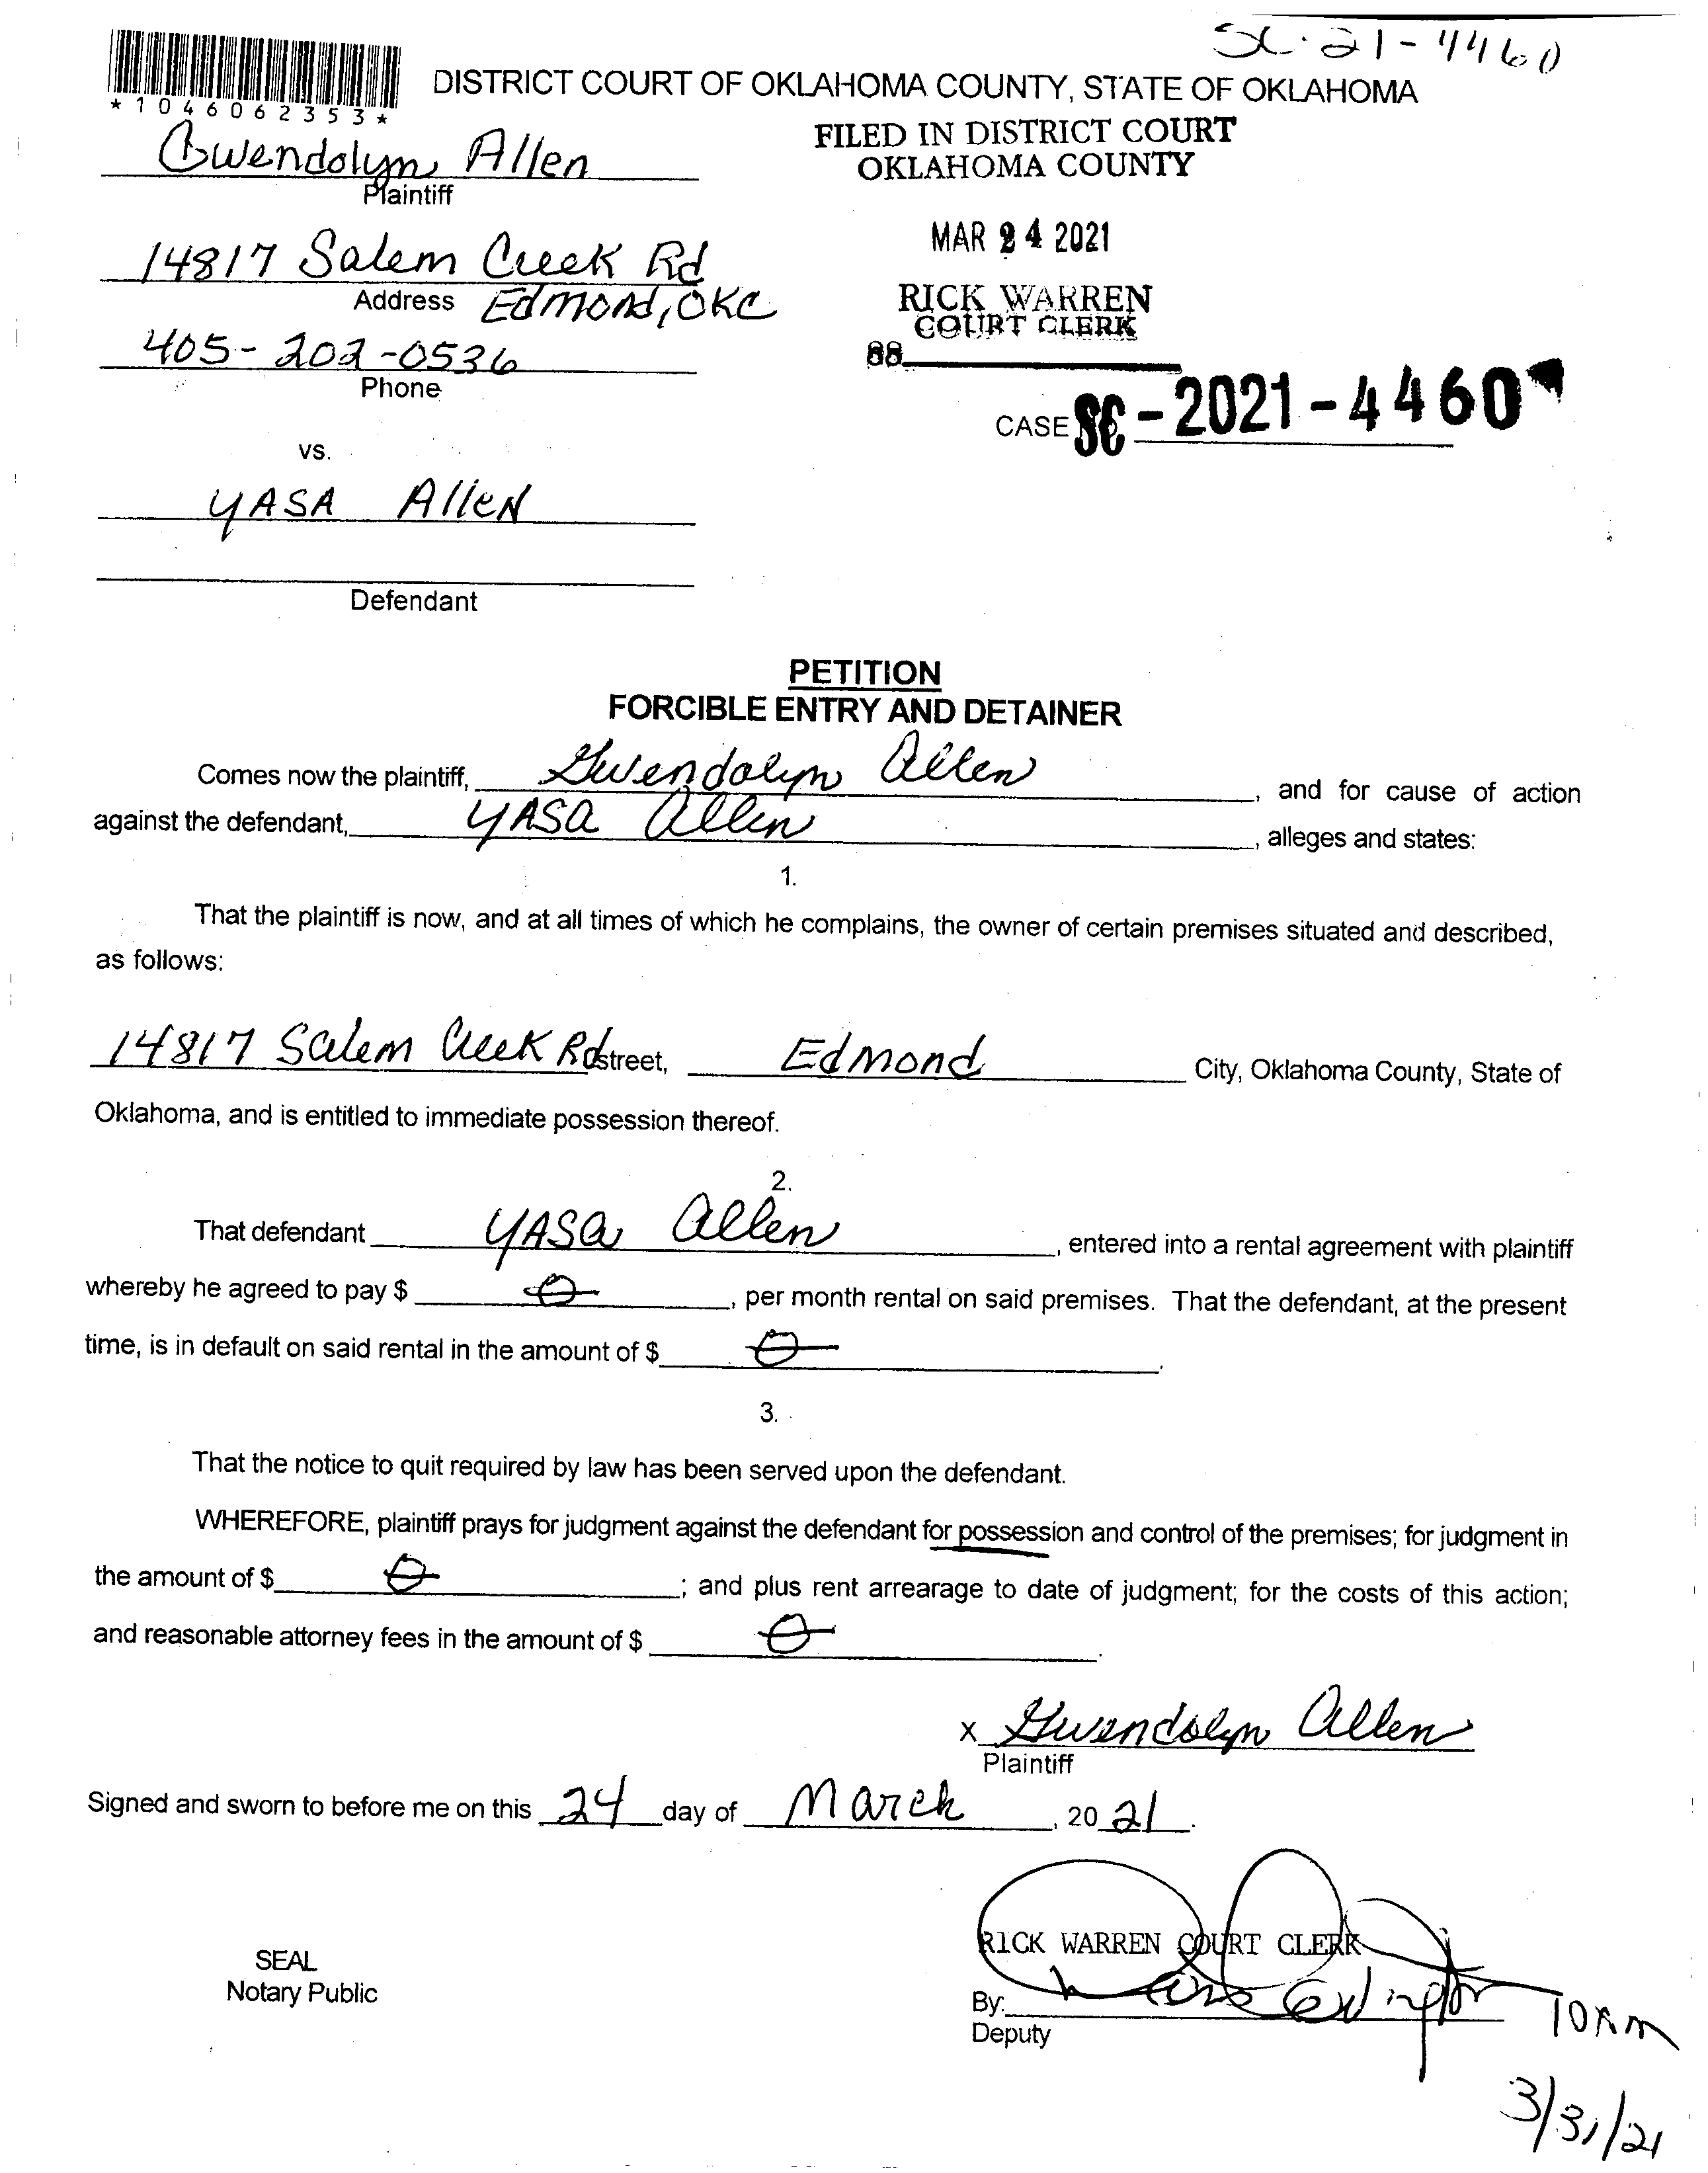 SC-21-4460
*1046062353*
DISTRICT COURT OF OKLAHOMA COUNTY, STATE OF OKLAHOMA
FILED IN DISTRICT COURT
OKLAHOMA COUNTY
Gwendolyn Allen
Plaintiff
MAR 24 2021
14817 Salem Creek Rd
Address Edmond, OKC
RICK WARREN
COURT CLERK
405-202-0536
Phone
88
CASE SC-2021-4460
vs.
YASA Allen
Defendant
PETITION
FORCIBLE ENTRY AND DETAINER
Comes now the plaintiff, Gwendolyn Allen, and for cause of action
against the defendant, YASA Allen, alleges and states:
1.
That the plaintiff is now, and at all times of which he complains, the owner of certain premises situated and described,
as follows:
14817 Salem Creek Rd street, Edmond City, Oklahoma County, State of
Oklahoma, and is entitled to immediate possession thereof.
2.
That defendant YASA Allen, entered into a rental agreement with plaintiff
whereby he agreed to pay $ 0, per month rental on said premises. That the defendant, at the present
time, is in default on said rental in the amount of $ 0.
3.
That the notice to quit required by law has been served upon the defendant.
WHEREFORE, plaintiff prays for judgment against the defendant for possession and control of the premises; for judgment in
the amount of $ 0; and plus rent arrearage to date of judgment; for the costs of this action;
and reasonable attorney fees in the amount of $ 0.
X Gwendolyn Allen
Plaintiff
Signed and sworn to before me on this 24 day of March, 2021.
RICK WARREN COURT CLERK
SEAL
Notary Public
By:
Deputy
10 Am
3/31/21